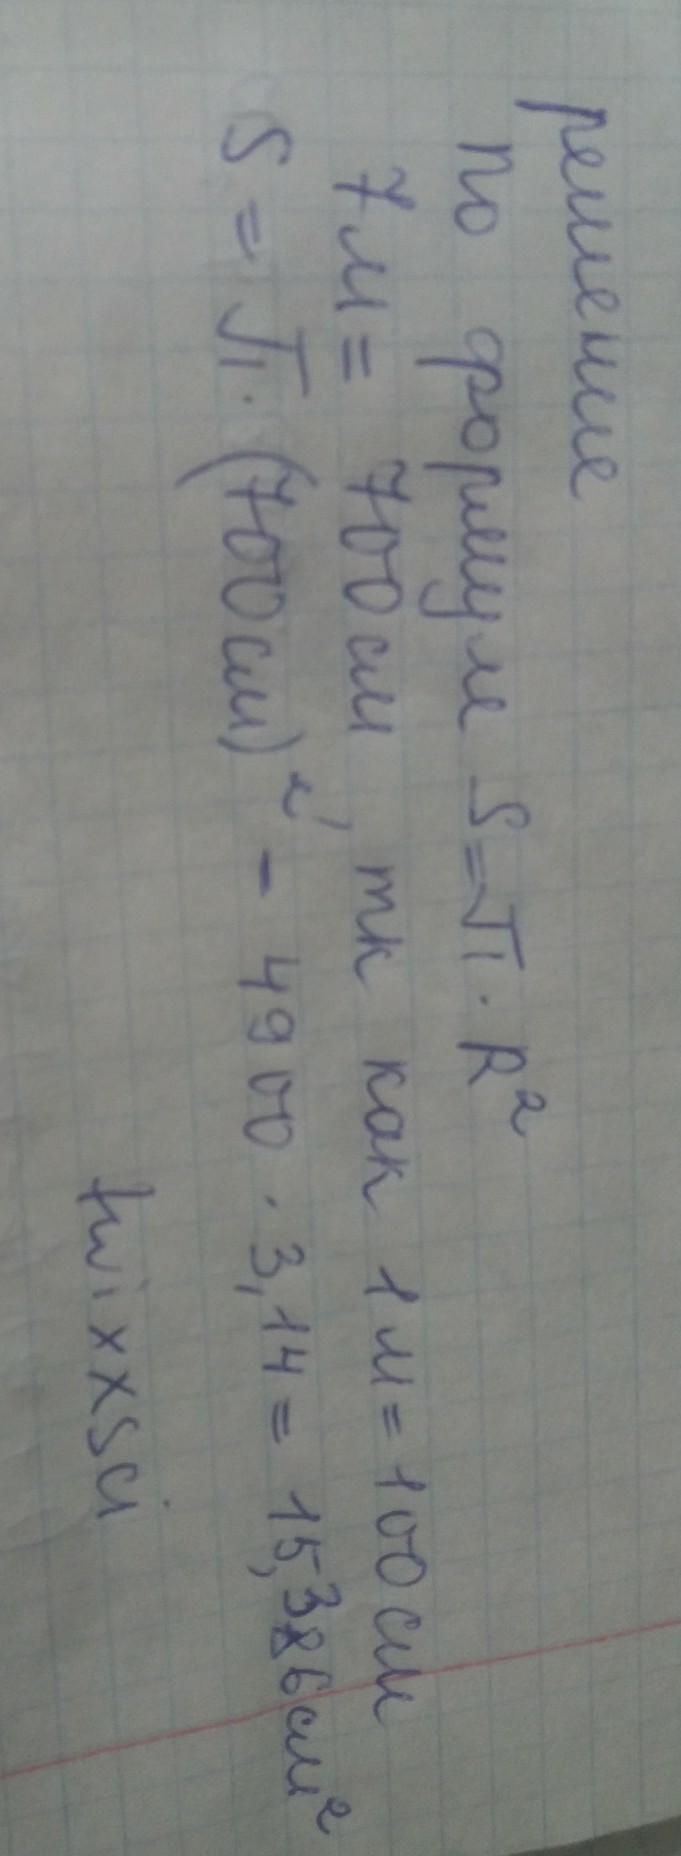 решение
по формуле S=π·R²
7м = 700см, тк как 1м=100см
S = π·(700см)² - 4900·3,14 = 15,386см²
twixxsci